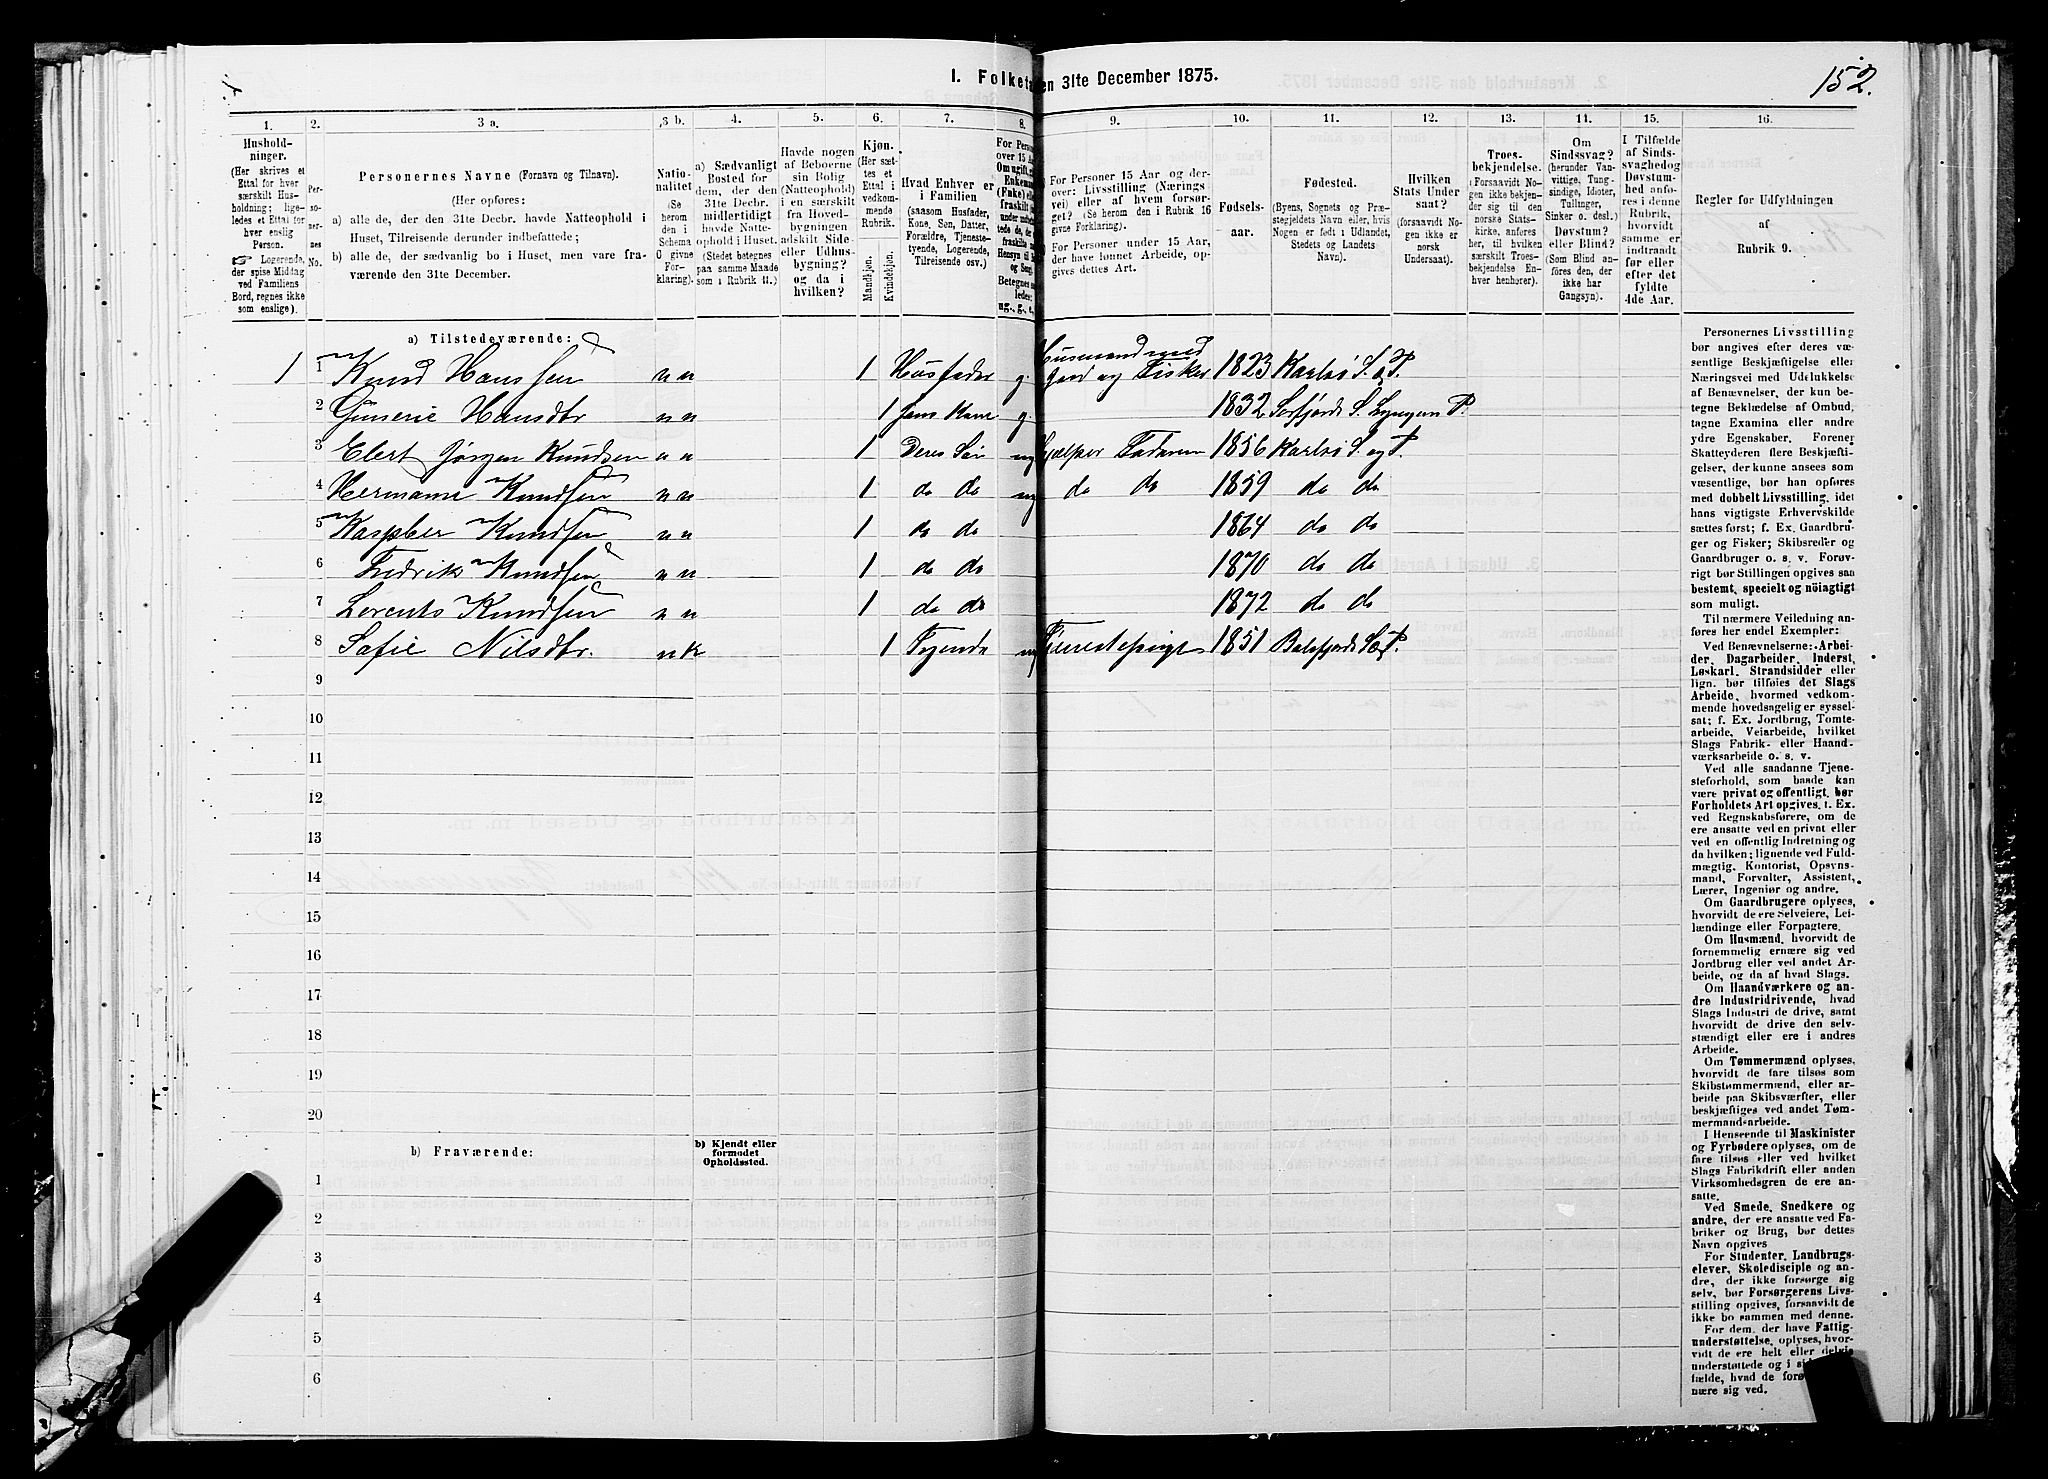 I. Folketa en 31te December 1875.
152.
1. 2. 3 a. 3 b. 4. 5. 6. 7. 8. 9. 10. 11. 12. 13. 11. 15. 16.
Husholdninger.
(Her skrives et
Ettal for hver
særskilt Husholdning; ligeledes et Ettal for
hver enslig
Person.
Logerende,
der spise Middag
ved Familiens
Bord, regnes ikke
som enslige).
Personernes No.
Personernes Navne (Fornavn og Tilnavn).
(Her opføres:
a) alle de, der den 31te Decbr. havde Natteophold i
Huset, Tilreisende derunder indbefattede;
b) alle de, der sædvanlig bo i Huset, men vare fraværende den 31te December.
Nationalitet
(Se
herom
den i
Schema
O givne
Forklaring).
a) Sædvanligt
Bosted for
dem, der den
31te Decbr.
midlertidigt
havde Natteophold i Huset.
(Stedet betegnes
paa samme Maade
som i Rubrik 11.)
Havde nogen
af Beboerne
sin Bolig
(Natteophold)
i en særskilt
fra Hovedbygningen
adskilt Side-
eller Udhusbygning?
og da i
hvilken?
Kjøn.
(Her sættes et
Ettal i
vedkommende
Rubrik.
Mandkjøn.
Kvindekjøn.
Hvad Enhver er
i Familien
(saasom Husfader,
Kone, Søn, Datter,
Forældre, Tjenestetyende, Logerende,
Tilreisende osv.)
For Personer 15 Aar og derover: Livsstilling (Næringsvei) eller af hvem forsørget? (Se herom den i Rubrik 16
givne Forklaring).
For Personer under 15 Aar,
der have lønnet Arbeide, opgives dettes Art.
Fødselsaar.
Fødested.
(Byens, Sognets og Præstegjeldets Navn eller, hvis
Nogen er født i Udlandet,
Stedets og Landets
Navn).
Hvilken
Stats Undersaat?
(forsaavidt Nogen ikke er
norsk
Undersaat).
Troesbekjendelse.
(Forsaavidt Nogen ikke bekjender sig til den
norske Statskirke, anføres her, til hvilken
særskilt Troesbekjendelse Enhver henhører).
Om
Sindssvag?
(herunder Vanvittige, Tungsindige, Idioter,
Tullinger,
Sinker o. desl.)
Døvstum?
eller Blind?
(Som Blind anføres den, der
ikke har
Gangsyn).
I Tilfælde
af Sindssvaghed og
Døvstumhed anføres i denne
Rubrik,
hvorvidt
samme er
indtraadt
før eller
efter det
fyldte
4de Aar.
Regler for Udfyldningen
af
Rubrik 9.
a) Tilstedeværende:
1 1 Knud Hanssen n n 1 Husfader g. Husmand med
Jord og Fisker 1823 Karlsø S. og P.
2 Gunerie Hansdtr n n 1 hans Kone g. 1832 Sørfjords S. Lyngen P.
3 Elert Jørgen Knudsen n n 1 Deres Søn ug Hjælper Faderen 1856 Karlsø S. og P.
4 Hermann Knudsen n n 1 do do ug do do 1859 do do
5 Kaspber Knudsen n n 1 do do 1864 do do
6 Fredrik Knudsen n n 1 do do 1870 do do
7 Lorents Knudsen n n 1 do do 1872 do do
8 Sofie Nilsdtr. n k 1 Tyende ug Tjenestepige 1851 Balsfjords S og P.
9
10
11
12
13
14
15
16
17
18
19
20
b) Fraværende:
b) Kjendt eller
formodet
Opholdssted.
1
2
3
4
5
6
Personernes Livsstilling
bør angives efter deres væsentlige Beskjæftigelse eller
Næringsvei med Udelukkelse
af Benævnelser, der kun betegne Beklædelse af Ombud,
tagne Examina eller andre
ydre Egenskaber. Forener
Skatteyderen flere Beskjæftigelser, der kunne ansees som
væsentlige, bør han opføres
med dobbelt Livsstilling, idet
hans vigtigste Erhvervskilde
sættes først; f. Ex. Gaardbruger og Fisker; Skibsreder og
Gaardbruger o. s. v. Forøvrigt bør Stillingen opgives saa
bestemt, specielt og nöiagtigt
som muligt.
Til nærmere Veiledning anføres her endel Exempler:
Ved Benævnelserne: Arbeider, Dagarbeider, Inderst,
Løskarl, Strandsidder eller
lign. bør tilføies det Slags
Arbeide, hvormed vedkommende hovedsagelig er sysselsat; f. Ex. Jordbrug, Tomtearbeide, Veiarbeide, hvilket
Slags Fabrik- eller Haandværksarbeide o. s. v.
Ved alle saadanne Tjenesteforhold, som baade kan
være privat og offentligt, bør
Forholdets Art opgives, t. Ex.
ved Regnskabsførere, om de
ere ansatte ved en privat eller
ved en offentlig Indretning og
da hvilken; lignende ved Fuldmægtig, Kontorist, Opsynsmand, Forvalter, Assistent,
Lærer, Ingeniør og andre.
Om Gaardbrugere oplyses,
hvorvidt de ere Selveiere, Leilændinge eller Forpagtere.
Om Husmænd, hvorvidt de
fornemmelig ernære sig ved
Jordbrug eller ved andet Arbeide, og da af hvad Slags.
Om Haandværkere og andre Industridrivende, hvad
Slags Industri de drive, samt
hvorvidt de drive den selvstændigt eller ere i andres
Arbeide.
Om Tømmermænd oplyses,
hvorvidt de fare tilsøs som
Skibstømmermænd, eller arbeide paa Skibsværfter, eller
beskjæftiges ved andet Tømmermandsarbeide.
I Henseende til Maskinister
og Fyrbødere oplyses, om de
fare tilsøs eller ved hvilket
Slags Fabrikdrift eller anden
Virksomhedsgren de ere ansatte.
Ved Smede, Snedkere og
andre, der ere ansatte ved Fabriker og Brug, bør dettes
Navn opgives
For Studenter, Landbrugselever, Skoledisciple og andre, der ikke forsørge sig
selv, bør Forsørgerens Livsstilling opgives, forsaavidt de
ikke bo sammen med denne.
For dem, der have Fattigunderstøttelse, oplyses, hvorvidt de ere helt eller delvis
understøttede og i
fælde, hvad de
nære sig ved.